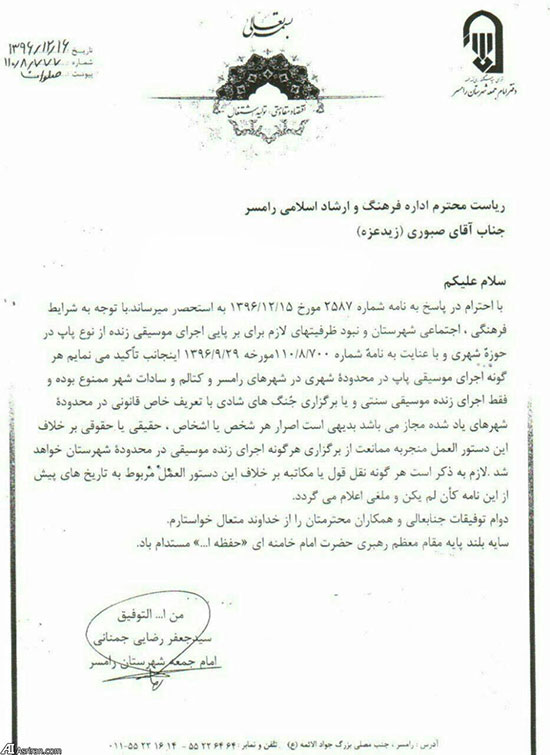 بسمه تعالی
تاریخ ۱۳۹۶/۱۲/۱۶
شماره ۱۱۰/۸/۷۷۷
پیوست صلوات
دفتر امام جمعه شهرستان رامسر
اقتصاد مقاومتی، تولید، اشتغال
ریاست محترم اداره فرهنگ و ارشاد اسلامی رامسر
جناب آقای صبوری (زیدعزه)
سلام علیکم
با احترام در پاسخ به نامه شماره ۲۵۸۷ مورخ ۱۳۹۶/۱۲/۱۵ به استحصر میرساند.با توجه به شرایط
فرهنگی ، اجتماعی شهرستان و نبود ظرفیتهای لازم برای بر پایی اجرای موسیقی زنده از نوع پاپ در
حوزۀ شهری و با عنایت به نامۀ شماره ۱۱۰/۸/۷۰۰مورخه ۱۳۹۶/۹/۲۹ اینجانب تأکید می نمایم هر
گونه اجرای موسیقی پاپ در محدودۀ شهری در شهرهای رامسر و کتالم و سادات شهر ممنوع بوده و
فقط اجرای زنده موسیقی سنتی و یا برگزاری جُنگ های شادی با تعریف خاص قانونی در محدودۀ
شهرهای یاد شده مجاز می باشد بدیهی است اصرار هر شخص یا اشخاص ، حقیقی یا حقوقی بر خلاف
این دستور العمل منجربه ممانعت از برگزاری هرگونه اجرای زنده موسیقی در محدودۀ شهرستان خواهد
شد .لازم به ذکر است هر گونه نقل قول یا مکاتبه بر خلاف این دستور العمل مربوط به تاریخ های پیش
از این نامه کأن لم یکن و ملغی اعلام می گردد.
دوام توفیقات جنابعالی و همکاران محترمتان را از خداوند متعال خواستارم.
سایه بلند پایه مقام معظم رهبری حضرت امام خامنه ای «حفظه ا...» مستدام باد.
من ا... التوفیق
سیدجعفر رضایی جمنانی
امام جمعه شهرستان رامسر
آدرس : رامسر ، جنب مصلی بزرگ جواد الائمه (ع) تلفن و نمابر : ۶۴ ۶۴ ۲۲ ۵۵ - ۱۴ ۱۶ ۲۲ ۵۵-۰۱۱
Asriran.com